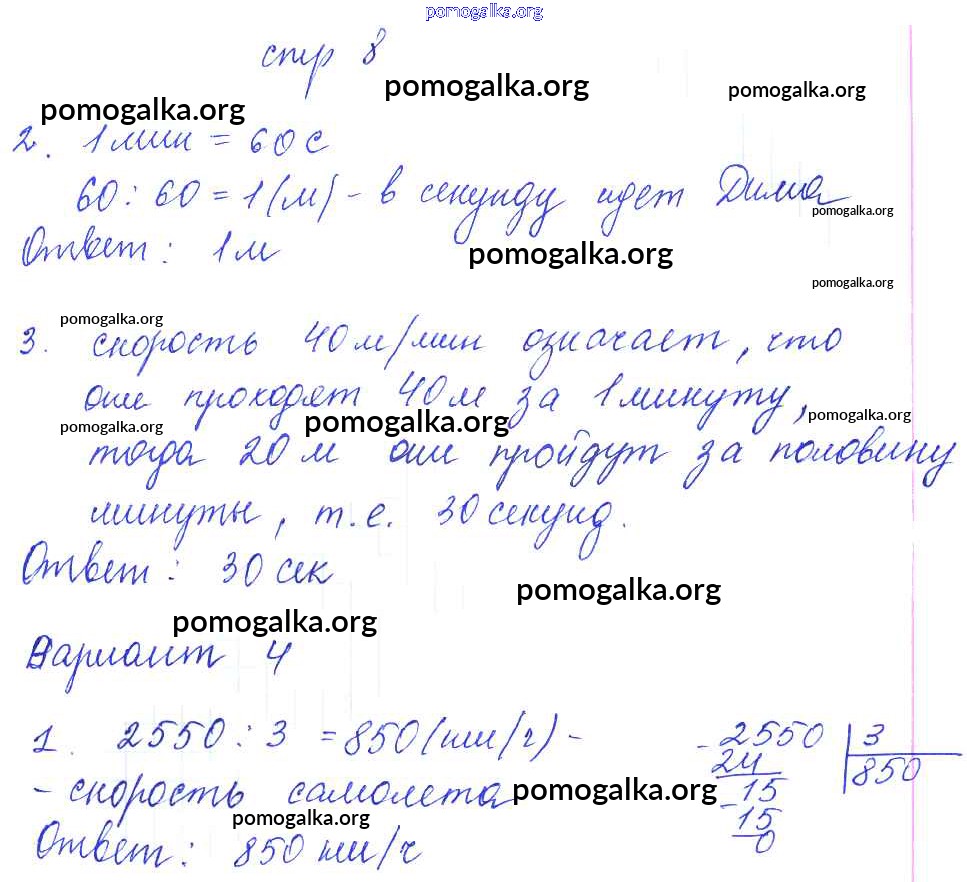 pomogalka.org
стр 8
pomogalka.org
pomogalka.org
pomogalka.org
2. 1 мин = 60 с
60 : 60 = 1 (м) - в секунду идет Дима
pomogalka.org
Ответ: 1 м
pomogalka.org
pomogalka.org
pomogalka.org
3. скорость 40 м/мин означает, что
они проходят 40 м за 1 минуту,
pomogalka.org
pomogalka.org
pomogalka.org
тогда 20 м они пройдут за половину
минуты, т.е. 30 секунд.
Ответ: 30 сек
pomogalka.org
pomogalka.org
Вариант 4
1. 2550 : 3 = 850 (км/ч) -
- скорость самолета
pomogalka.org
pomogalka.org
Ответ: 850 км/ч
- 2550 3
24 850
15
- 15
0